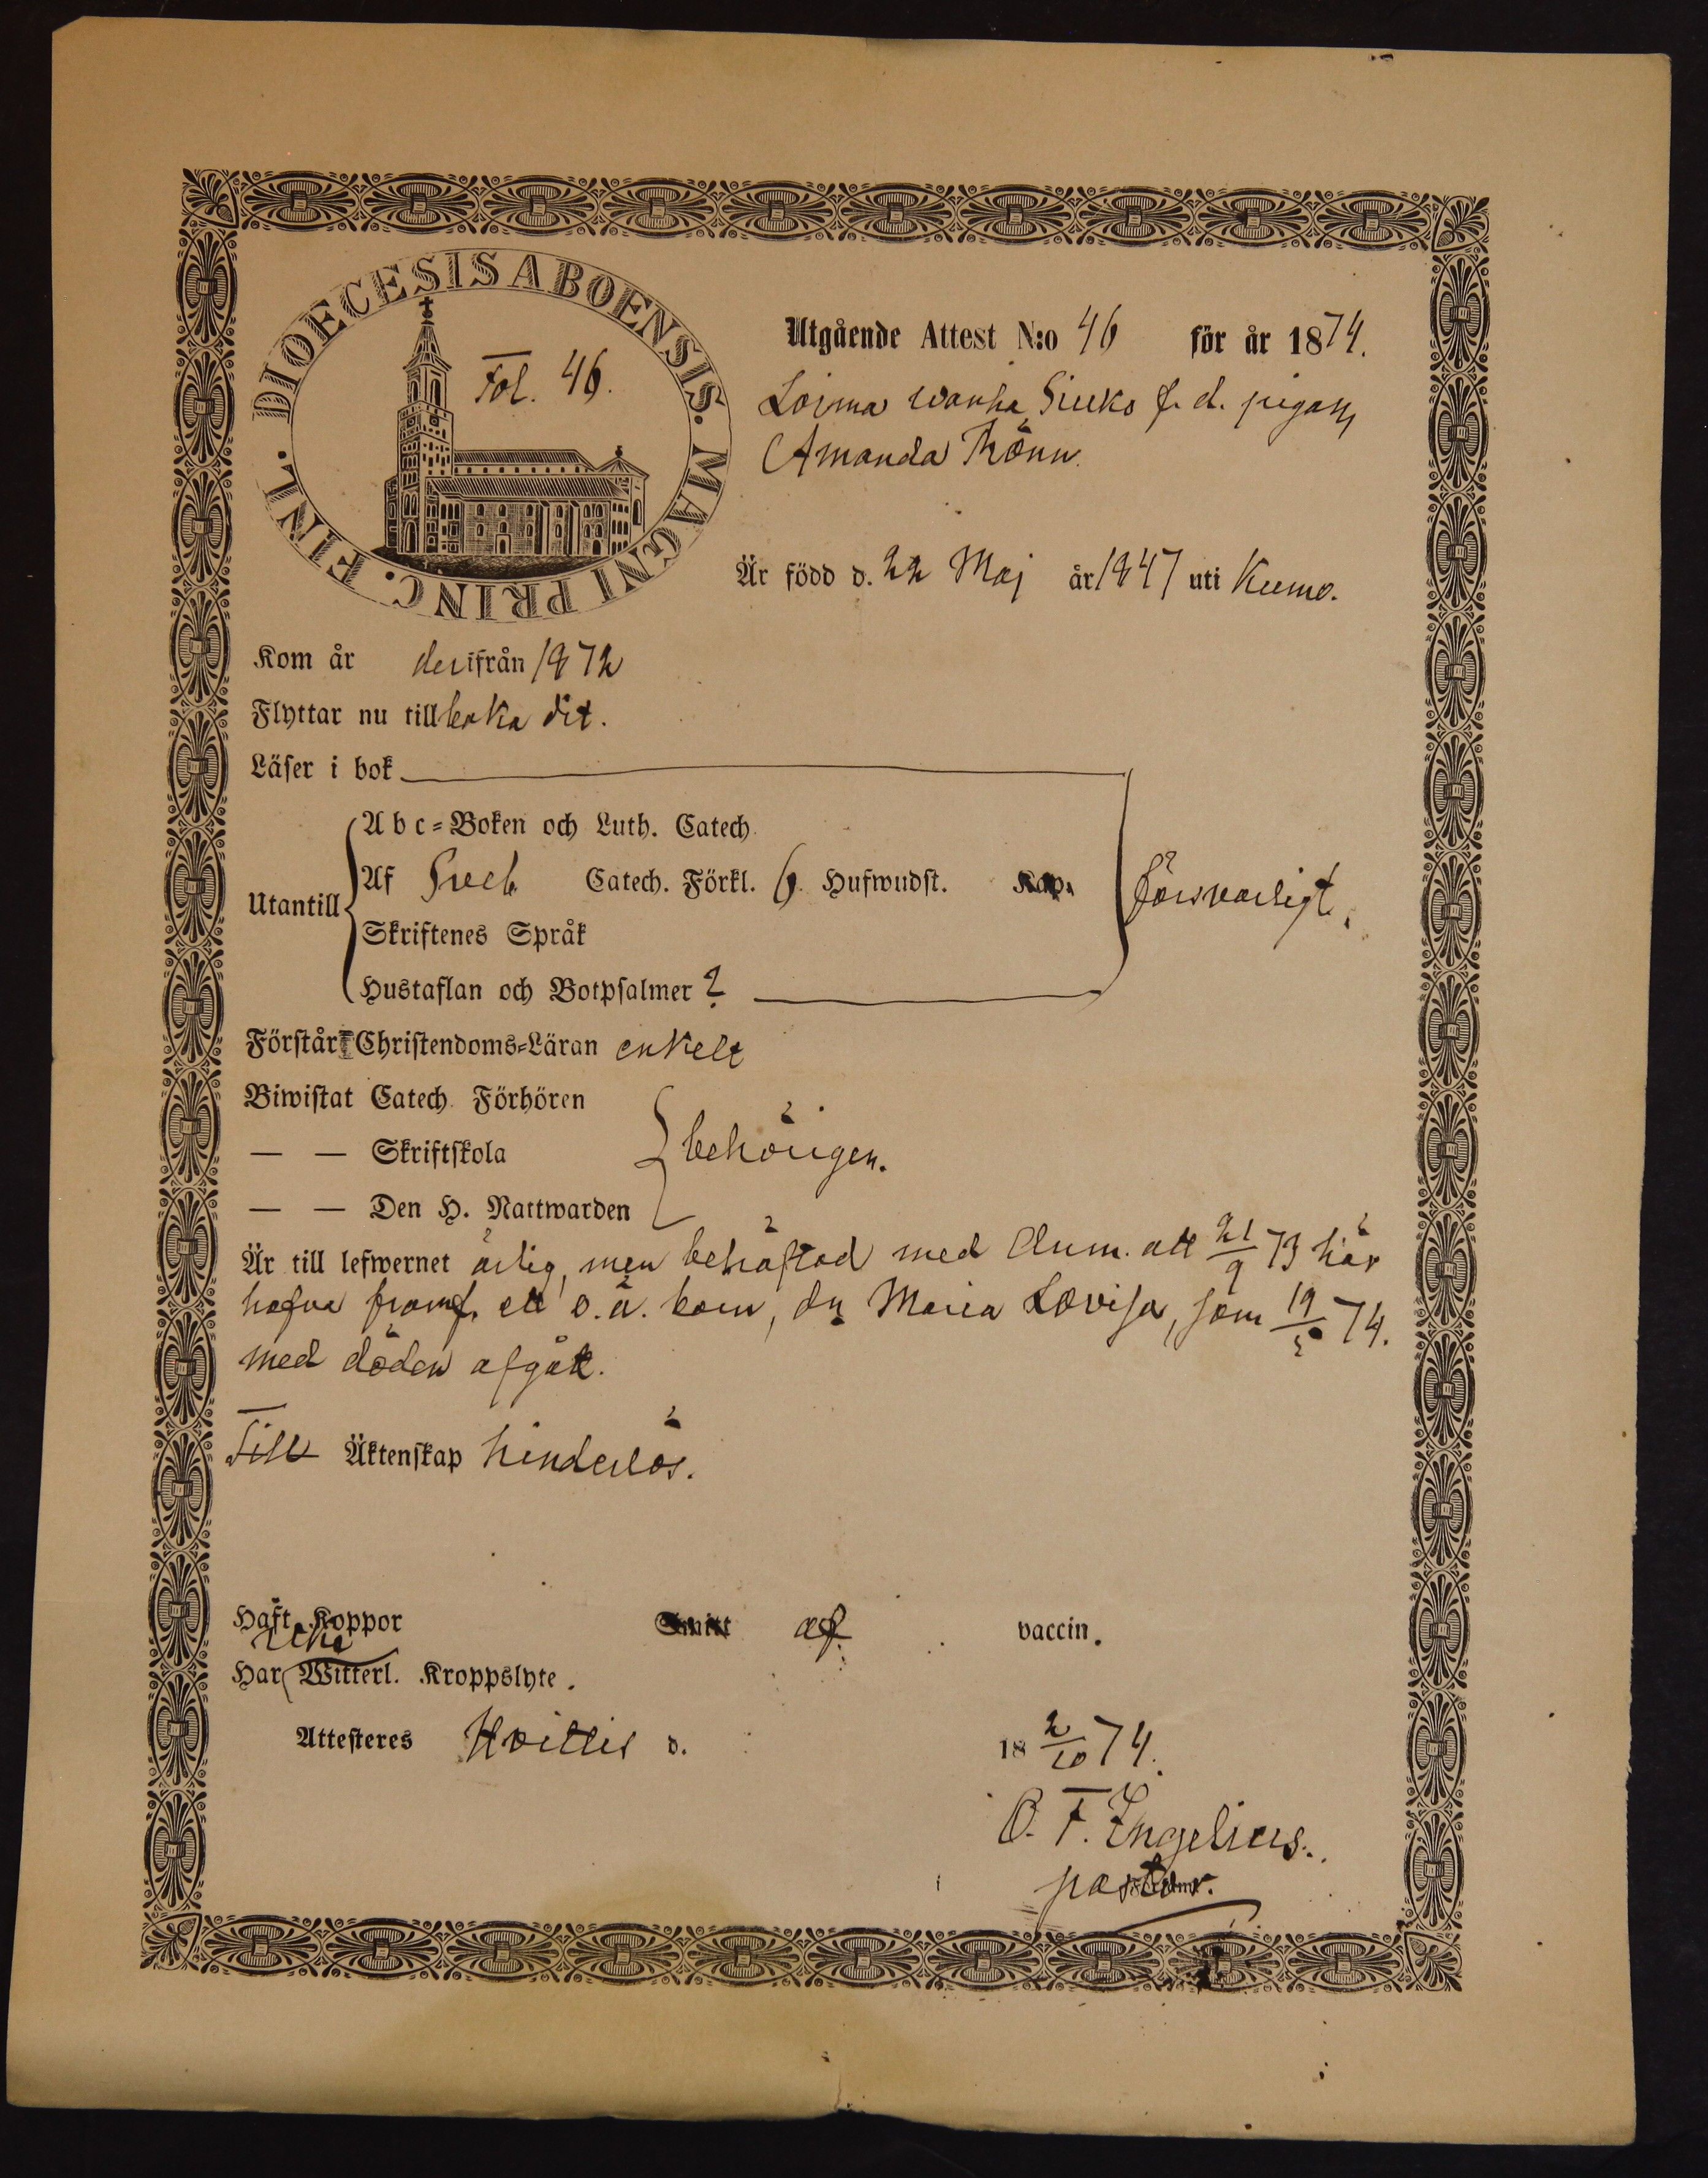 DIOECESIS ABOENSIS. MAGNI PRINC. FINL.
Fol. 46.
Utgående Attest N:o 46 för år 1874.
Loima wanha Siuko f. d. pigan
Amanda Rönn.
Är född d. 22 Maj år 1847 uti Kumo.
Kom år derifrån 1872
Flyttar nu till baka dit.
Läser i bok
Utantill
Abc-Boken och Luth. Catech.
Af Catech. Förkl. 6. Hufwudst. Kap.
försvarligt.
Skriftenes Språk
Hustaflan och Botpsalmer ?
Förstår Christendoms-Läran enkelt
Biwistat Catech. Förhören
— — Skriftskola
behörigen.
— — Den H. Nattwarden
Är till lefwernet ärlig, men behäftad med Anm. att 21/9 73 här
hafva framf. ett o. ä. barn, dn Maria Lovisa, som 19/5 74.
med döden afgått.
Till Äktenskap hinderlös.
Haft Koppor Smitt af vaccin.
Har icke Witterl. Kroppslyte.
Attesteres Hvittis d. 18 2/10 74.
O. F. Ingelius.
pastor.